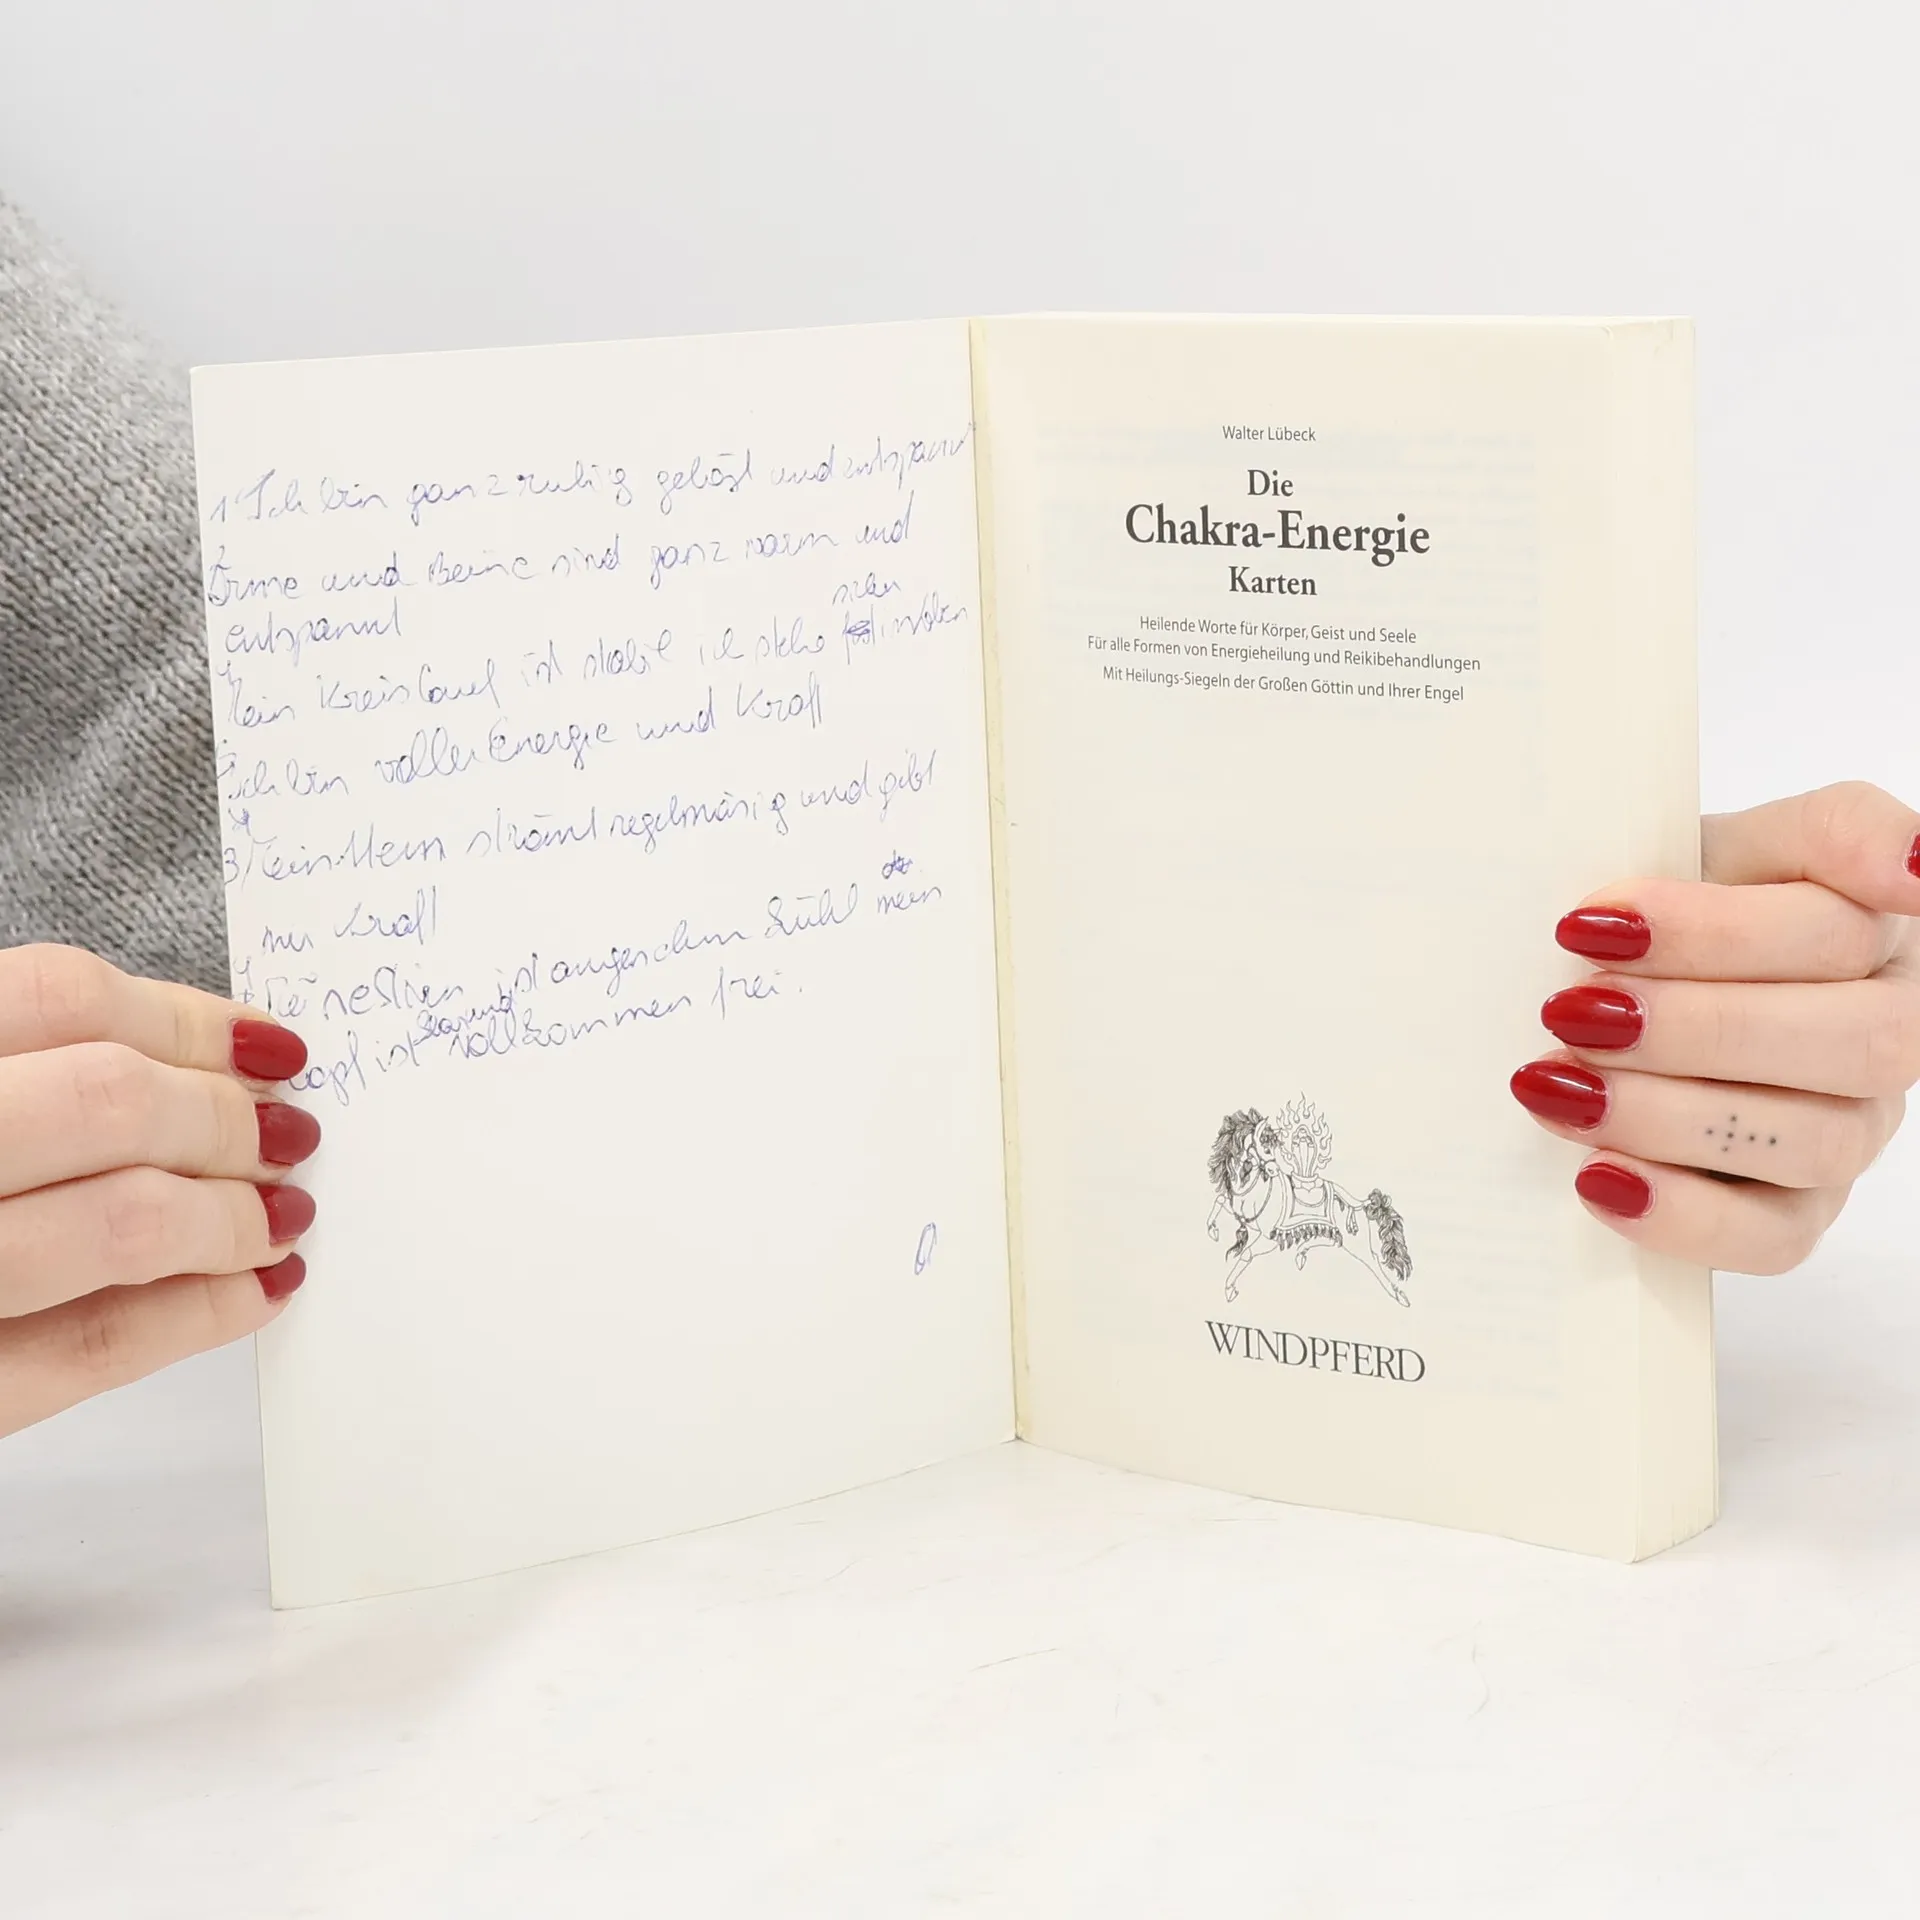 Ich bin ganz ruhig gelöst und entspannt
Arme und Beine sind ganz warm und
entspannt
sicher
Mein Kreislauf ist stabil ich stehe
Ich bin voller Energie und Kraft
3) strömt regelmäsig und gibt
mir Kraft
ist angenehm kühl mein
klar und
Kopf ist vollkommen frei.
Walter Lübeck
Die
Chakra-Energie
Karten
Heilende Worte für Körper, Geist und Seele
Für alle Formen von Energieheilung und Reikibehandlungen
Mit Heilungs-Siegeln der Großen Göttin und Ihrer Engel
WINDPFERD